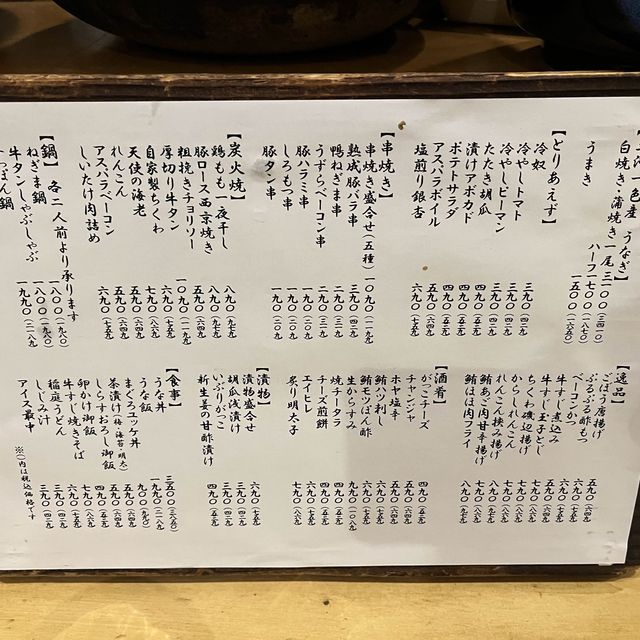 一色産 うなぎ】
白焼き・蒲焼き 一尾 三一〇〇(三四一〇)
ハーフ 一七〇〇(一八七〇)
うまき 一五〇〇(一六五〇)
【とりあえず】
冷奴 三九〇(四二九)
冷やしトマト 三九〇(四二九)
冷やしピーマン 三九〇(四二九)
たたき胡瓜 四九〇(五三九)
漬けアボカド 四九〇(五三九)
ポテトサラダ 四九〇(五三九)
アスパラボイル 五九〇(六四九)
塩煎り銀杏 六九〇(七五九)
【串焼き】
串焼き盛合せ(五種) 一〇九〇(一一九九)
熟成豚バラ串 三九〇(四二九)
鴨ねぎま串 二九〇(三一九)
うずらベーコン串 二九〇(三一九)
豚ハラミ串 一九〇(二〇九)
しろもつ串 一九〇(二〇九)
豚タン串 一九〇(二〇九)
【炭火焼】
鶏もも一夜干し 八九〇(九七九)
豚ロース西京焼き 八九〇(九七九)
粗挽きチョリソー 五九〇(六四九)
厚切り牛タン 一〇九〇(一一九九)
自家製ちくわ 七九〇(八六九)
天使の海老 七九〇(八六九)
れんこん 五九〇(六四九)
アスパラベーコン 五九〇(六四九)
しいたけ肉詰め 六九〇(七五九)
【鍋】 各二人前より承ります
ねぎま鍋 一八〇〇(一九八〇)
牛タンしゃぶしゃぶ 一八〇〇(一九八〇)
っぽん鍋 一九九〇(二一八九)
【逸品】
ごぼう唐揚げ 五九〇(六四九)
ぷるぷる酢もつ 六九〇(七五九)
ベーコンかつ 六九〇(七五九)
牛すじ煮込み
牛すじ玉子とじ 七九〇(八六九)
ちくわ磯辺揚げ 七九〇(八六九)
からしれんこん
れんこん挟み揚げ 七九〇(八六九)
鮪あご肉甘辛揚げ 七九〇(八六九)
鮪ほほ肉フライ 八九〇(九七九)
【酒肴】
がっこチーズ 四九〇(五三九)
チャンジャ 五九〇(六四九)
ホヤ塩辛 五九〇(六四九)
鮪ハツ刺し
鮪モツぽん酢 六九〇(七五九)
生からすみ 九九〇(一〇八九)
焼チータラ 四九〇(五三九)
チーズ煎餅 四九〇(五三九)
エイヒレ
炙り明太子 七九〇(八六九)
【漬物】
漬物盛合せ 六九〇(七五九)
胡瓜浅漬け 三九〇(四二九)
いぶりがっこ 三九〇(四二九)
新生姜の甘酢漬け 四九〇(五三九)
【食事】
うな丼 三五〇〇(三八五〇)
うな飯 一九九〇(二一八九)
まぐろユッケ丼 九〇〇(九九〇)
茶漬け(梅・海苔・明太) 五九〇(六四九)
しらすおろし御飯 五九〇(六四九)
卵かけ御飯 四九〇(五三九)
牛すじ焼きそば 七九〇(八六九)
稲庭うどん 六九〇(七五九)
しじみ汁 三九〇(四二九)
アイス最中 三九〇(四二九)
※()内は税込価格です